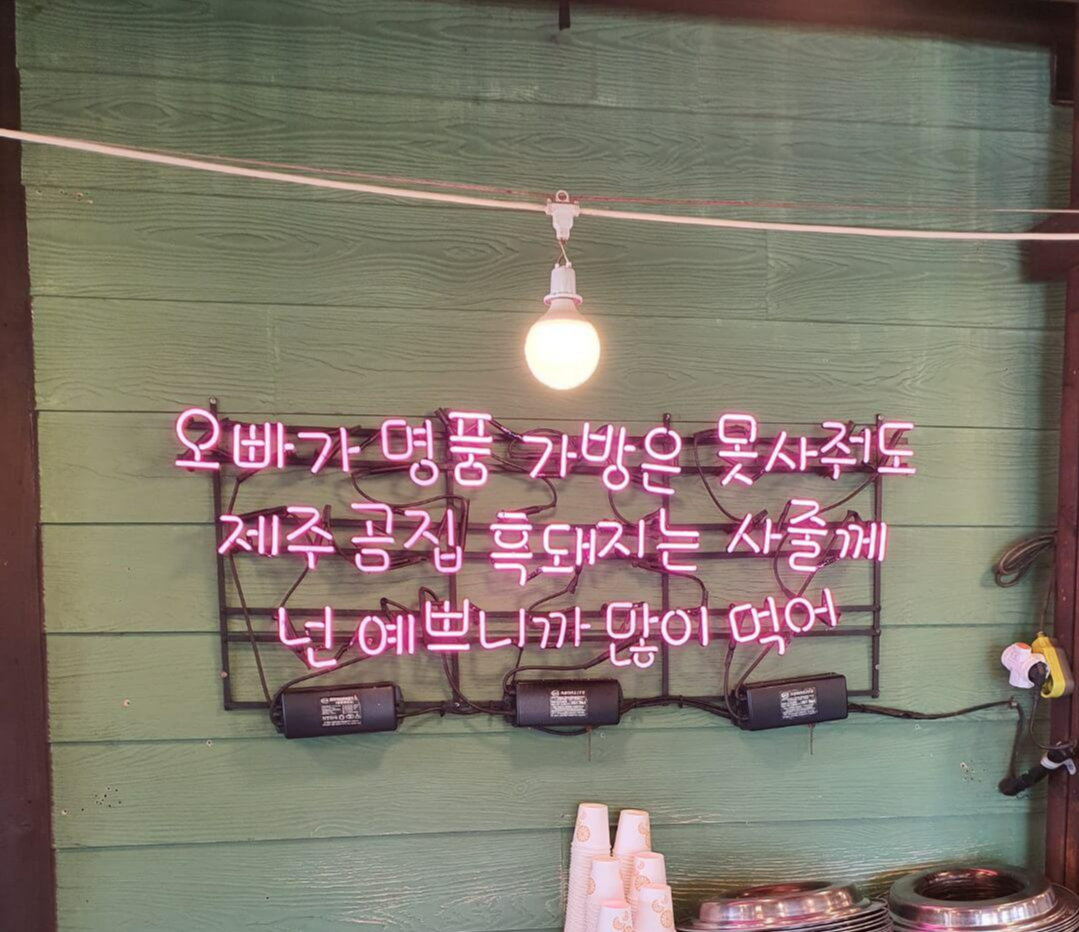 오빠가 명품 가방은 못사줘도
제주 곰집 흑돼지는 사줄께
넌 예쁘니까 많이 먹어